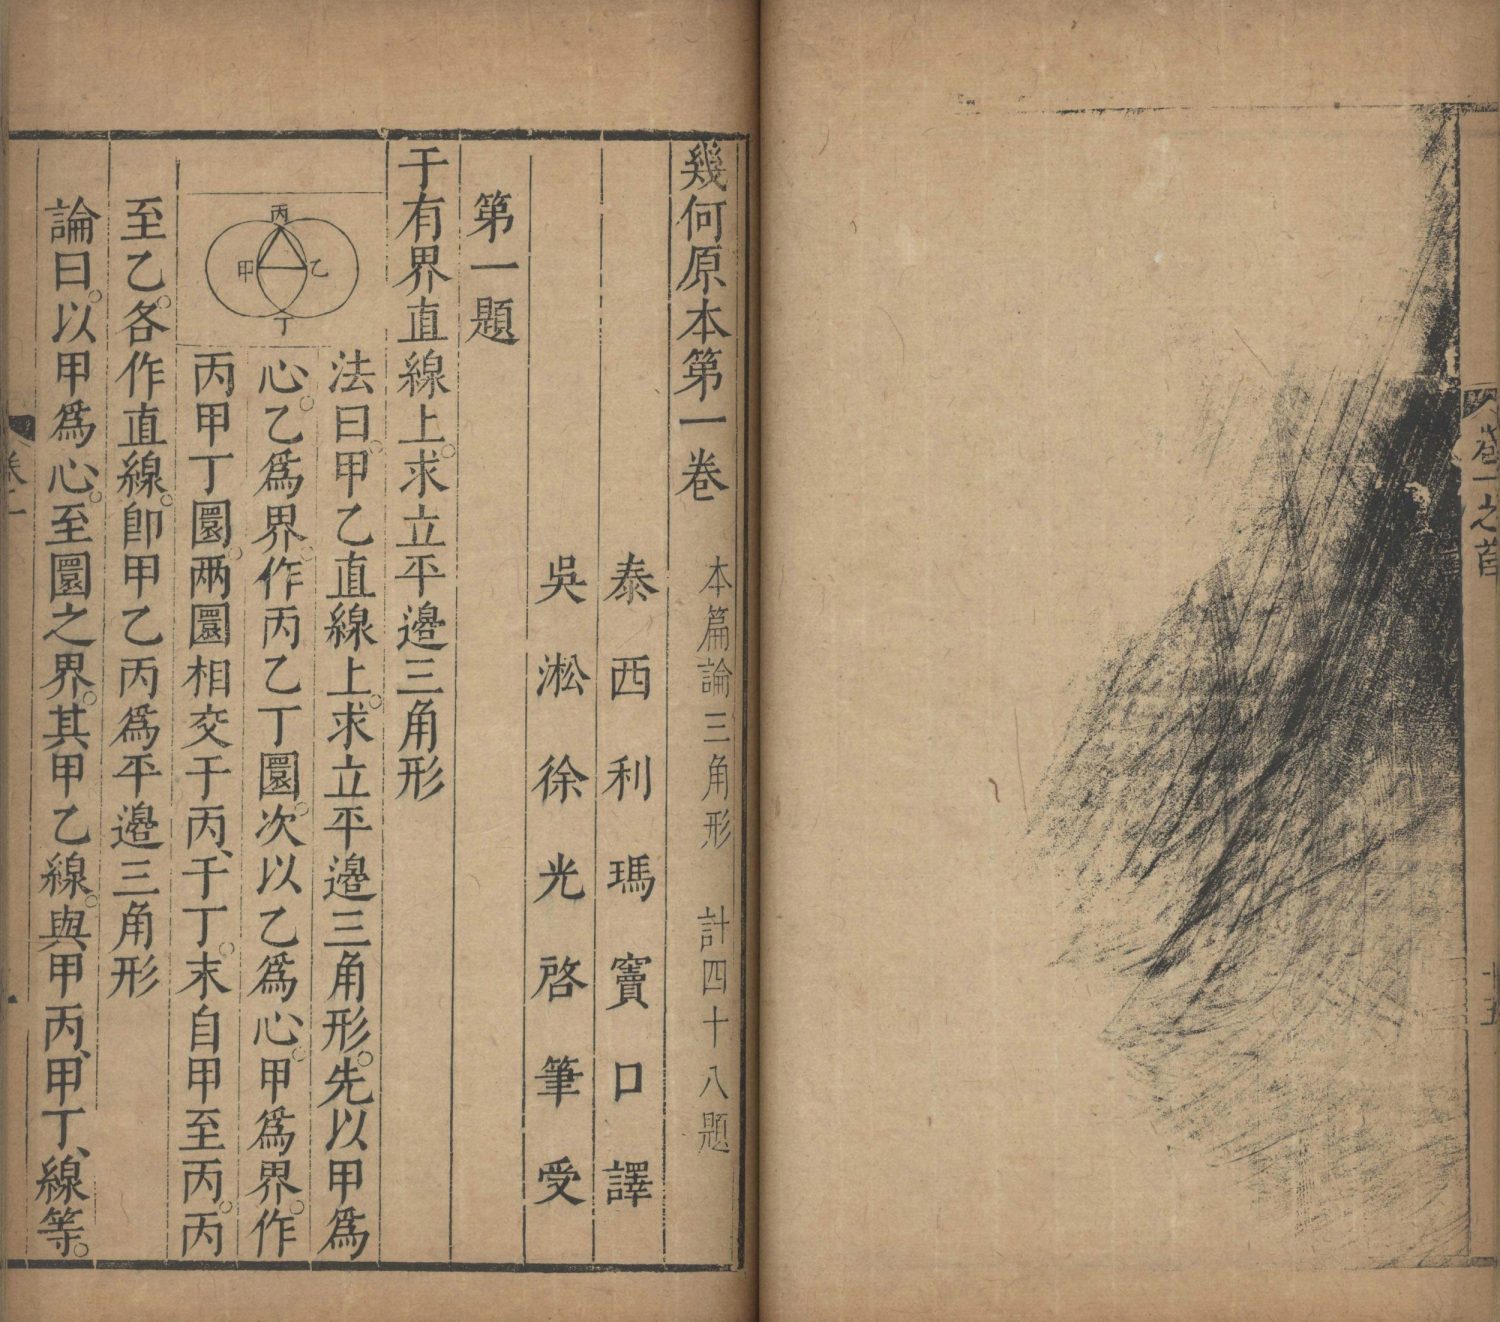 卷一之首
十五
幾何原本第一卷 本篇論三角形 計四十八題
泰西利瑪竇口譯
吳淞徐光啓筆受
第一題
于有界直線上。求立平邊三角形
丙
甲 乙
丁
法曰。甲乙直線上。求立平邊三角形。先以甲爲
心。乙爲界。作丙乙丁圜。次以乙爲心。甲爲界。作
丙甲丁圜。兩圜相交于丙、于丁。末自甲至丙。丙
至乙。各作直線。卽甲乙丙爲平邊三角形
論曰。以甲爲心。至圜之界。其甲乙線。與甲丙、甲丁、線等。
卷一